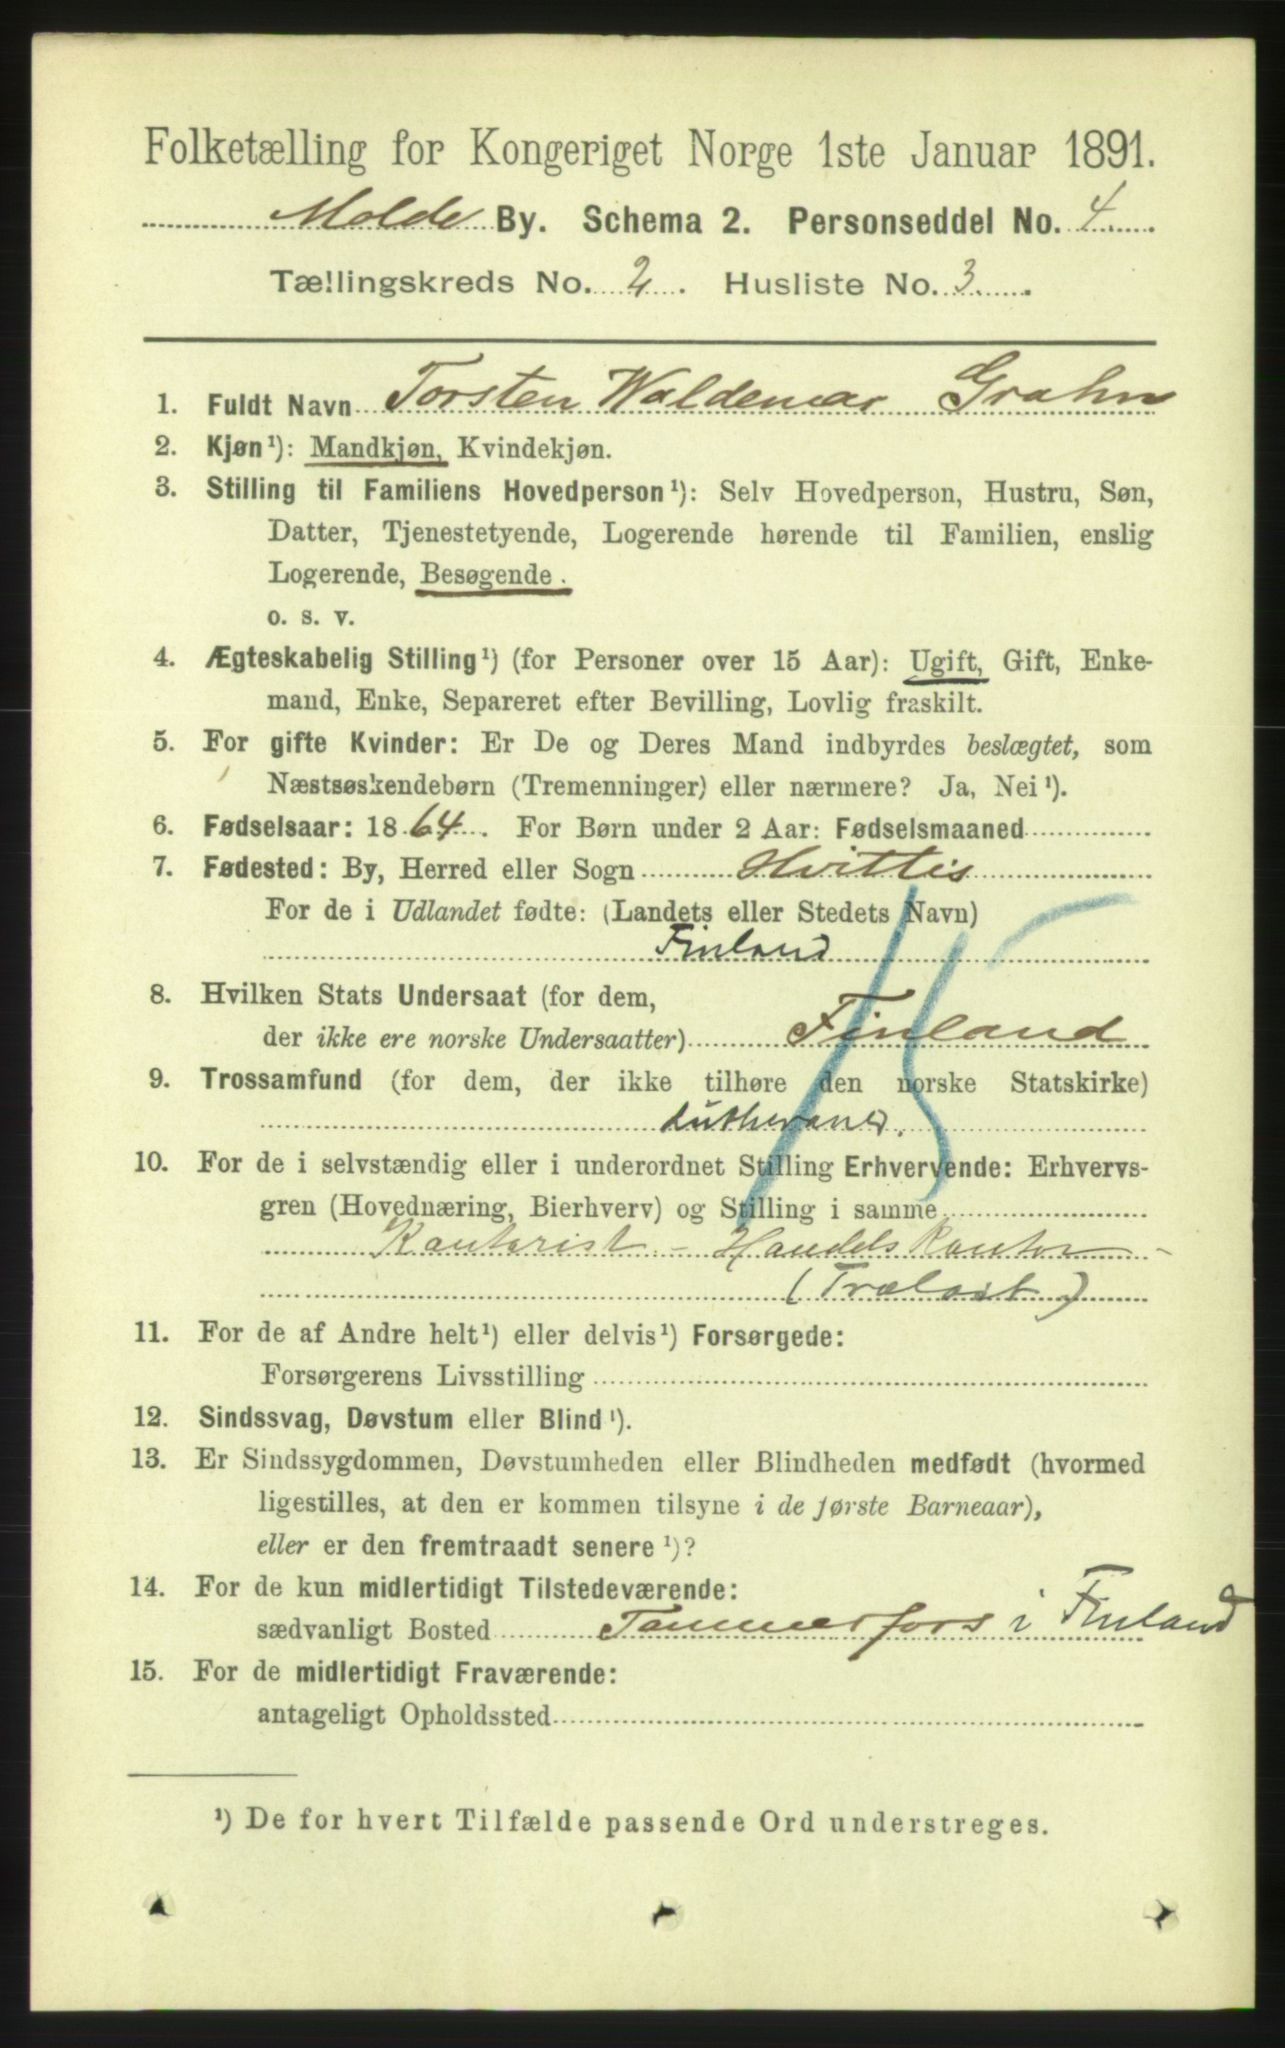 Folketælling for Kongeriget Norge 1ste Januar 1891.
Molde By. Schema 2. Personseddel No. 4
Tællingskreds No. 2. Husliste No. 3.
1. Fuldt Navn Torsten Waldemar Grahn
2. Kjøn¹): Mandkjøn, Kvindekjøn.
3. Stilling til Familiens Hovedperson¹): Selv Hovedperson, Hustru, Søn,
Datter, Tjenestetyende, Logerende hørende til Familien, enslig
Logerende, Besøgende.
o. s. v.
4. Ægteskabelig Stilling¹) (for Personer over 15 Aar): Ugift, Gift, Enke-
mand, Enke, Separeret efter Bevilling, Lovlig fraskilt.
5. For gifte Kvinder: Er De og Deres Mand indbyrdes beslægtet, som
Næstsøskendebørn (Tremenninger) eller nærmere? Ja, Nei¹).
6. Fødselsaar: 1864. For Børn under 2 Aar: Fødselsmaaned
7. Fødested: By, Herred eller Sogn Hvittis
For de i Udlandet fødte: (Landets eller Stedets Navn)
Finland
15
8. Hvilken Stats Undersaat (for dem,
der ikke ere norske Undersaatter) Finland
9. Trossamfund (for dem, der ikke tilhøre den norske Statskirke)
Lutheraner.
10. For de i selvstændig eller i underordnet Stilling Erhvervende: Erhvervs-
gren (Hovednæring, Bierhverv) og Stilling i samme
Kantorist - Handelskontor -
(Trælast)
11. For de af Andre helt¹) eller delvis¹) Forsørgede:
Forsørgerens Livsstilling
12. Sindssvag, Døvstum eller Blind¹).
13. Er Sindssygdommen, Døvstumheden eller Blindheden medfødt (hvormed
ligestilles, at den er kommen tilsyne i de første Barneaar),
eller er den fremtraadt senere¹)?
14. For de kun midlertidigt Tilstedeværende:
sædvanligt Bosted Tammerfors i Finland
15. For de midlertidigt Fraværende:
antageligt Opholdssted
¹) De for hvert Tilfælde passende Ord understreges.